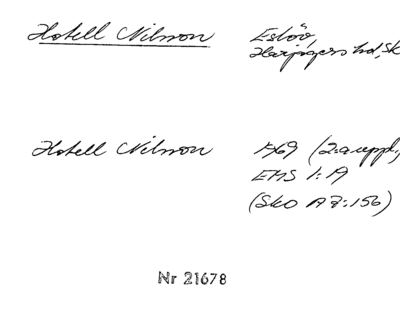 Hotell Nilsson Eslöv,
Harjagers hd, Sk
Hotell Nilsson FK69 (2:a uppl.,
EHS 1:A
(Sko A 7:156)
Nr 21678